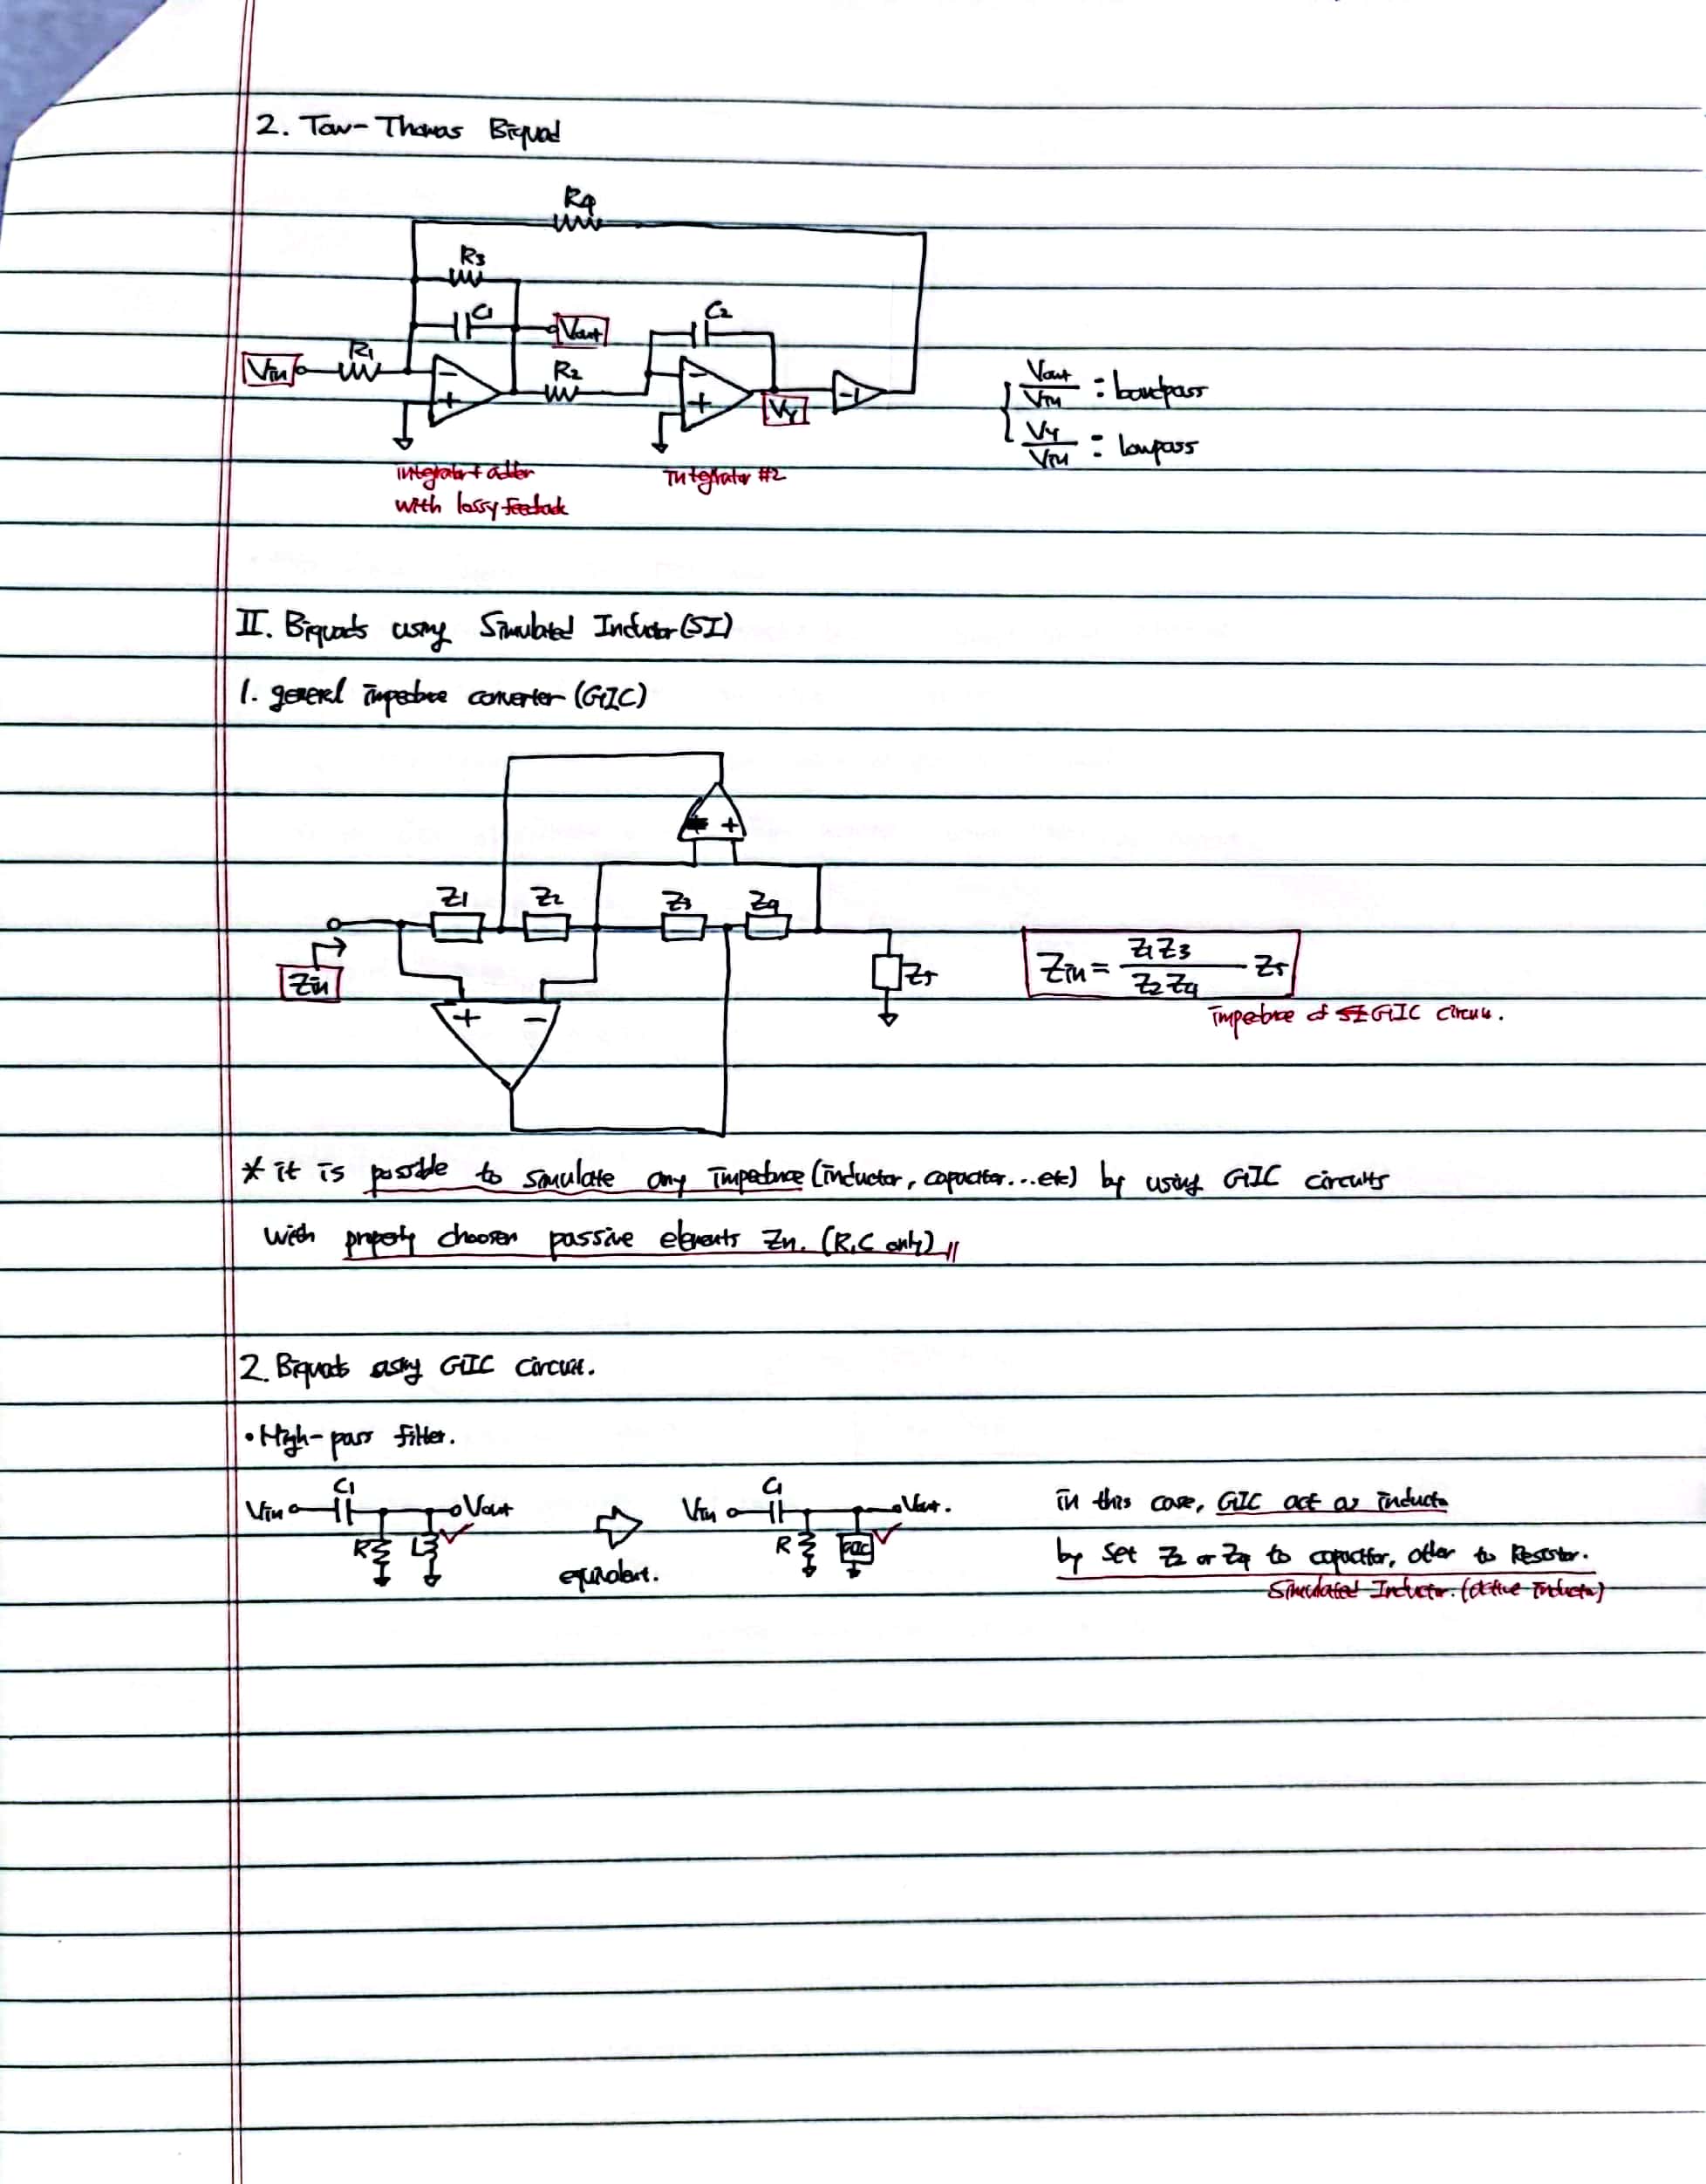 2. Tow-Thomas Biquad
R4
R3
C1
Vout
C2
Vin
R1
R2
-
+
-
+
Vy
-1
Vout/Vin : bandpass
Vy/Vin : lowpass
integrator + adder
with lossy feedback
Integrator #2
II. Biquads using Simulated Inductor (SI)
1. general impedance converter (GIC)
+
Z1
Z2
Z3
Z4
Zin
Z5
+
-
Zin = Z1Z3/Z2Z4 Z5
impedance of GIC circuit.
* it is possible to simulate any impedance (inductor, capacitor...etc) by using GIC circuits
with properly choosen passive elements Zn. (R,C only)
2. Biquads using GIC circuit.
• High-pass filter.
Vin
C1
Vout
R
L
equivalent.
Vin
C1
Vout.
R
GIC
in this case, GIC act as inductor
by set Z2 or Z4 to capacitor, other to Resistor.
Simulated Inductor. (active inductor)